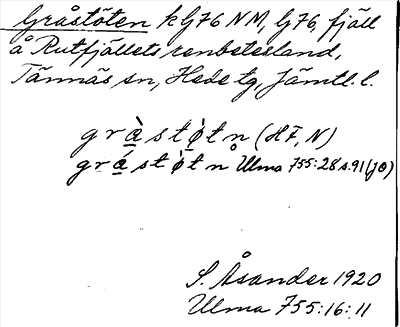 Gråstöten k G76 NM, G76, fjäll
å Rutfjällets renbetesland,
Tännäs sn, Hede tg, Jämtl. l.
grὰstὸ̣tn̥ (HF, N)
grά̱stὸ̣tn̥ Ulma 755:28 s. 91 (JO)
S. Åsander 1920
Ulma 755:16:11